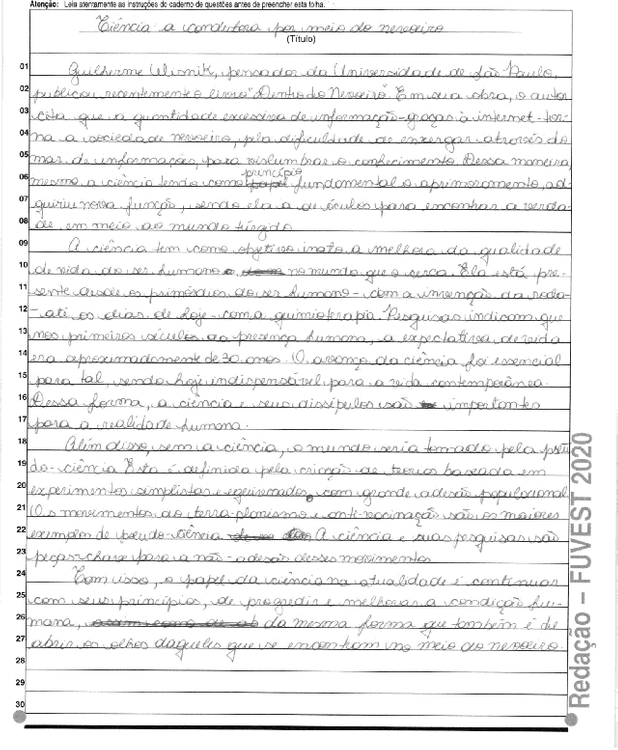 Atenção: Leia atentamente as instruções do caderno de questões antes de preencher esta folha.
Ciência: a condutora por meio do nevoeiro
(Título)
01 Guilherme Wisnik, pensador da Universidade de São Paulo,
02 publicou recentemente o livro "Dentro do Nevoeiro". Em sua obra, o autor
03 cita que a quantidade excessiva de informação - graças à internet - tor-
04 na a sociedade nevoeiro, pela dificuldade de enxergar através do
05 mar de informações, para vislumbrar o conhecimento. Dessa maneira,
princípio
06 mesmo a ciência tendo como papel fundamental o aprimoramento, ad-
07 quiriu nova função, sendo ela a de óculos para encontrar a verda-
08 de em meio ao mundo túrgido.
09 A ciência tem como objetivo inato a melhora da qualidade
10 de vida do ser humano e no mundo que o cerca. Ela está pre-
11 sente desde os primórdios do ser humano - com a invenção da roda-
12 - até os dias de hoje - com a quimioterapia. Pesquisas indicam que
13 nos primeiros séculos da presença humana, a expectativa de vida
14 era aproximadamente de 30 anos. O avanço da ciência foi essencial
15 para tal, sendo hoje indispensável para a vida contemporânea.
16 Dessa forma, a ciência e seus dissípulos são importantes
17 para a realidade humana.
18 Além disso, sem a ciência, o mundo seria tomado pela pseu-
19 do-ciência. Esta é definida pela criação de teorias baseada em
20 experimentos simplistas e equivocados, com grande adesão populacional.
21 Os movimentos do terra-planismo e anti-vacinação são os maiores
22 exemplos de pseudo-ciência. A ciência e suas pesquisas são
23 peças-chave para a não-adesão desses movimentos.
24 Com isso, o papel da ciência na atualidade é continuar
25 com seus princípios, de progredir e melhorar a condição hu-
26 mana, da mesma forma que também é de
27 abrir os olhos daqueles que se encontram no meio do nevoeiro.
28
29
30
Redação – FUVEST 2020